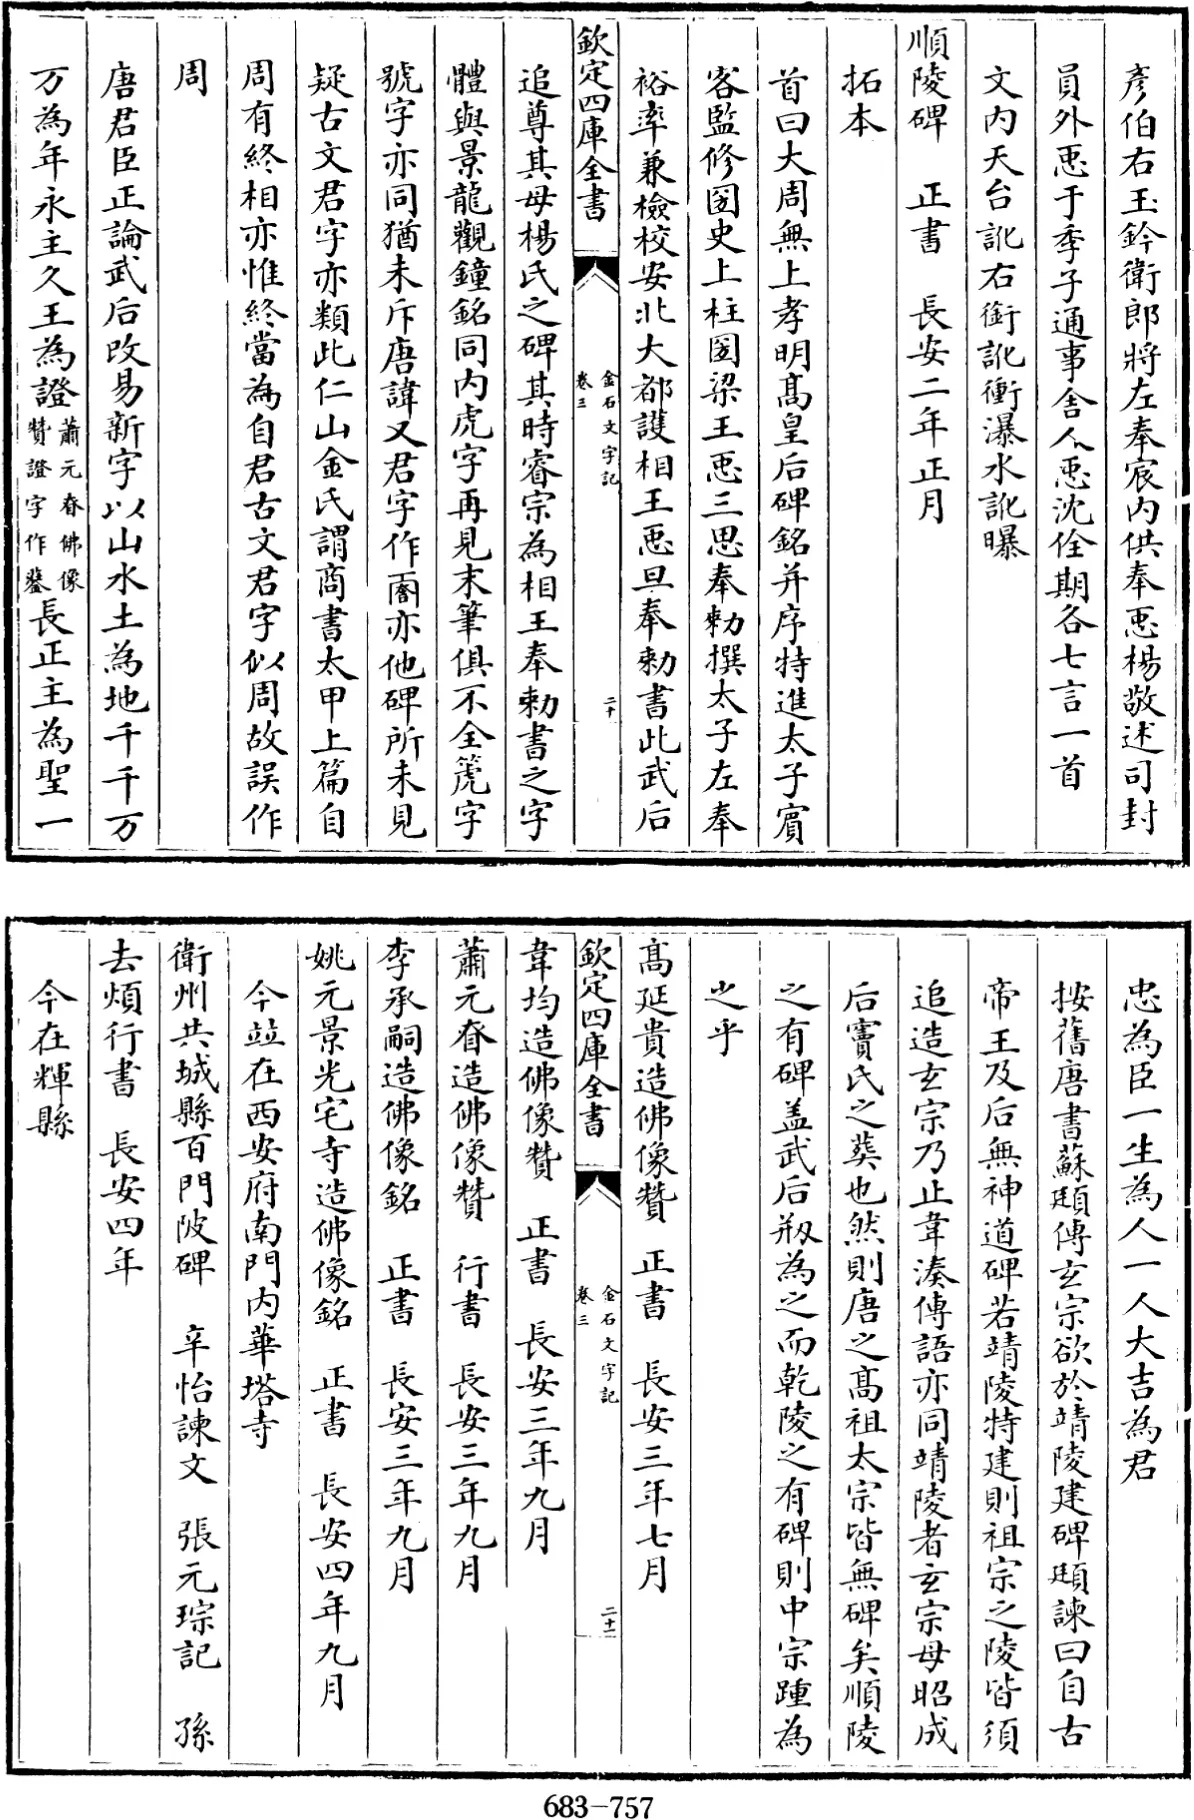 彦伯右玉鈐衛郎將左奉宸内供奉𢘑楊敬述司封
員外𢘑于季子通事舍人𢘑沈佺期各七言一首
文内天台訛右銜訛衝瀑水訛曝
順陵碑 正書 長安二年正月
拓本
首曰大周無上孝明髙皇后碑銘并序特進太子賓
客監修圀史上柱圀梁王𢘑三思奉勅撰太子左奉
裕率兼檢校安北大都護相王𢘑旦奉勅書此武后
欽定四庫全書
金石文字記
卷三
二十
追尊其母楊氏之碑其時睿宗為相王奉勅書之字
體與景龍觀鐘銘同内虎字再見末筆俱不全箎字
號字亦同猶未斥唐諱又君字作𠁈亦他碑所未見
疑古文君字亦類此仁山金氏謂商書太甲上篇自
周有終相亦惟終當為自君古文君字似周故誤作
周
唐君臣正論武后改易新字以山水土為地千千万
万為年永主久王為證蕭元眘佛像贊證字作𤯔長正主為聖一
忠為臣一生為人一人大吉為君
按舊唐書蘇頲傳玄宗欲於靖陵建碑頲諫曰自古
帝王及后無神道碑若靖陵特建則祖宗之陵皆須
追造玄宗乃止韋湊傳語亦同靖陵者玄宗母昭成
后竇氏之葬也然則唐之髙祖太宗皆無碑矣順陵
之有碑盖武后剏為之而乾陵之有碑則中宗踵為
之乎
髙延貴造佛像贊 正書 長安三年七月
欽定四庫全書
金石文字記
卷三
二十一
韋均造佛像贊 正書 長安三年九月
蕭元眘造佛像贊 行書 長安三年九月
李承嗣造佛像銘 正書 長安三年九月
姚元景光宅寺造佛像銘 正書 長安四年九月
今竝在西安府南門内華塔寺
衛州共城縣百門陂碑 辛怡諫文 張元琮記 孫
去煩行書 長安四年
今在輝縣
683-757